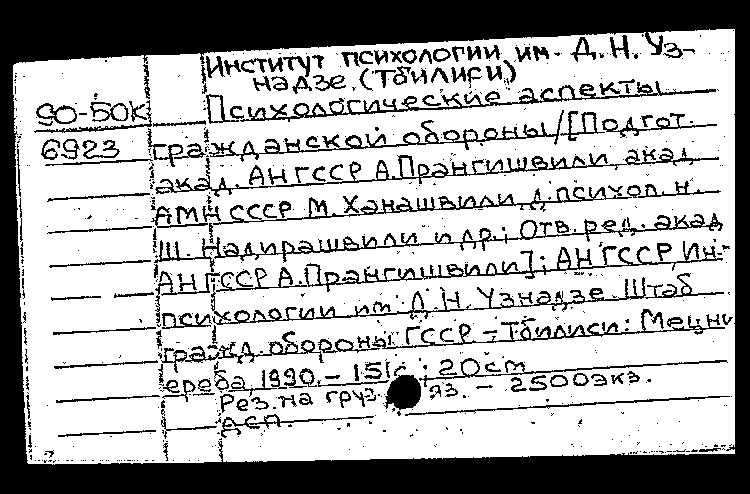 Институт психологии им. Д. Н. Уз-
надзе. (Тбилиси)
90-50к Психологические аспекты
6923 гражданской обороны / [Подгот.
акад. АН ГССР А. Прангишвили, акад.
АМН СССР М. Ханашвили, д. психол. н.
Ш. Надирашвили и др.; Отв. ред. акад
АН ГССР А. Прангишвили]; АН ГССР, Ин-т
психологии им. Д. Н. Узнадзе. Штаб
гражд. обороны ГССР - Тбилиси: Мецни
ереба, 1990. - 151с.; 20см
Рез. на груз. яз. - 2500экз.
ДСП.